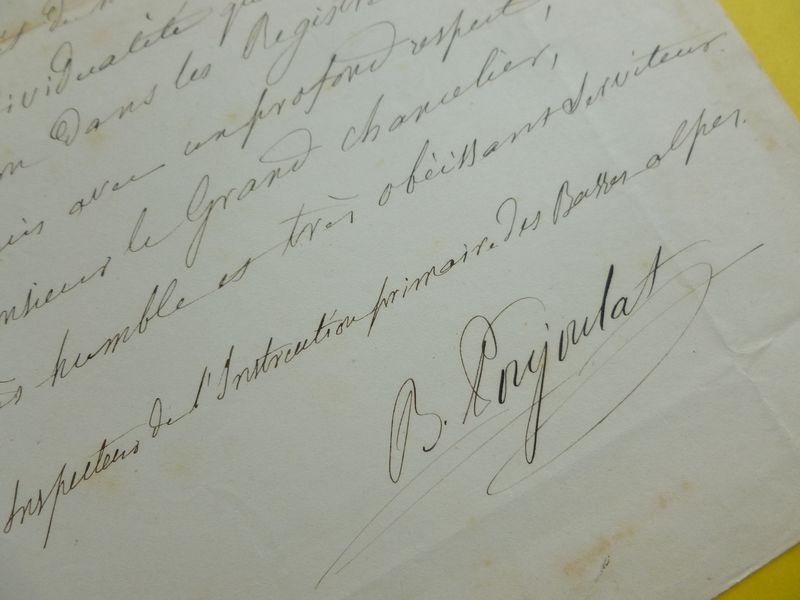 dividualité
dans les Registres
avec un profond respect,
le Grand chancelier,
humble et très obéissant serviteur.
Inspecteur de l'Instruction primaire des Basses alpes.
B. Poujoulat